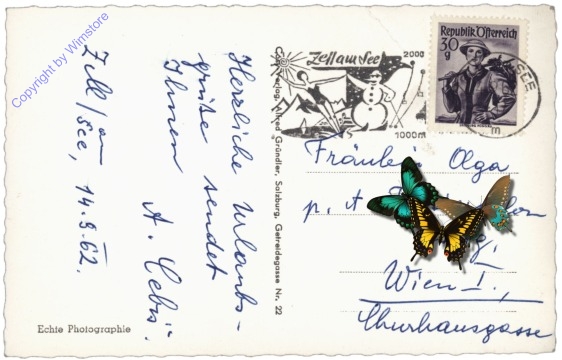 Copyright by Wimstore
Zell/am
See, 14.8.62.
Herzliche Urlaubs-
grüße sendet
Ihnen
Echte Photographie
Cosy-Verlag, Alfred Gründler, Salzburg, Getreidegasse Nr. 22
Zell am See
2000
1000m
Republik Österreich
30
g
SEE
Fräulein Olga
p. A.
Wien I.,
Churhausgasse